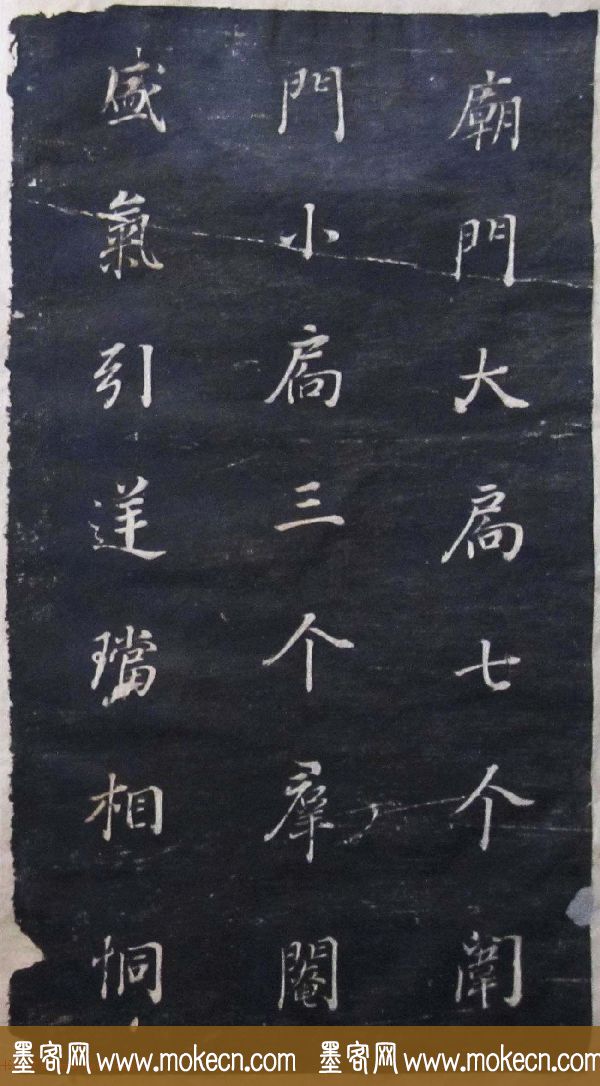 廟門大扃七个闈
門小扃三个羣閹
盛氣引逆璫相恫
墨客网 www.mokecn.com 墨客网 www.mokecn.com